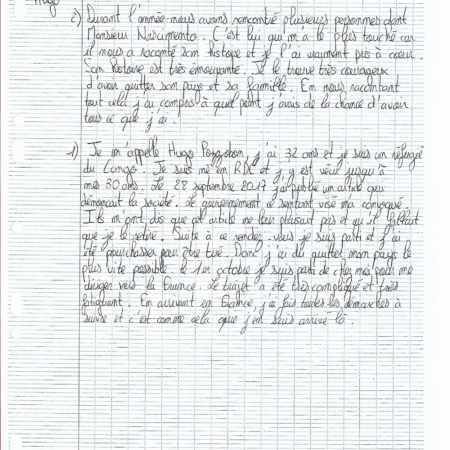 Hugo
2) Durant l'année nous avons rencontré plusieurs personnes dont
Monsieur Nascimento. C'est lui qui m'a le plus touché car
il nous a raconté son histoire et je l'ai vraiment pris à coeur.
Son histoire est très émouvante. Je le trouve très courageux
d'avoir quitter son pays et sa famille. En nous racontant
tout cela j'ai compris à quel point j'avais de la chance d'avoir
tous ce que j'ai.
1) Je m'appelle Hugo, j'ai 32 ans et je suis un réfugié
du Congo. Je suis né en RDC et j'y est vécu jusqu'à
mes 30 ans. Le 28 septembre 2017 j'ai publié un article qui
dénonçait la société. Le gouvernement se sentant visé m'a convoqué.
Ils m'ont dis que cet article ne leur plaisait pas et qu'il fallait
que je le retire. Suite à ce rendez-vous je suis parti et j'ai
été pourchasser pour être tué. Donc j'ai dû quitter mon pays le
plus vite possible. Le 1er octobre je suis parti de chez moi pour me
diriger vers la France. Le trajet a été très compliqué et très
fatiguant. En arrivant en France, j'ai fais toutes les démarches à
suivre et c'est comme cela que j'en suis arrivé là.